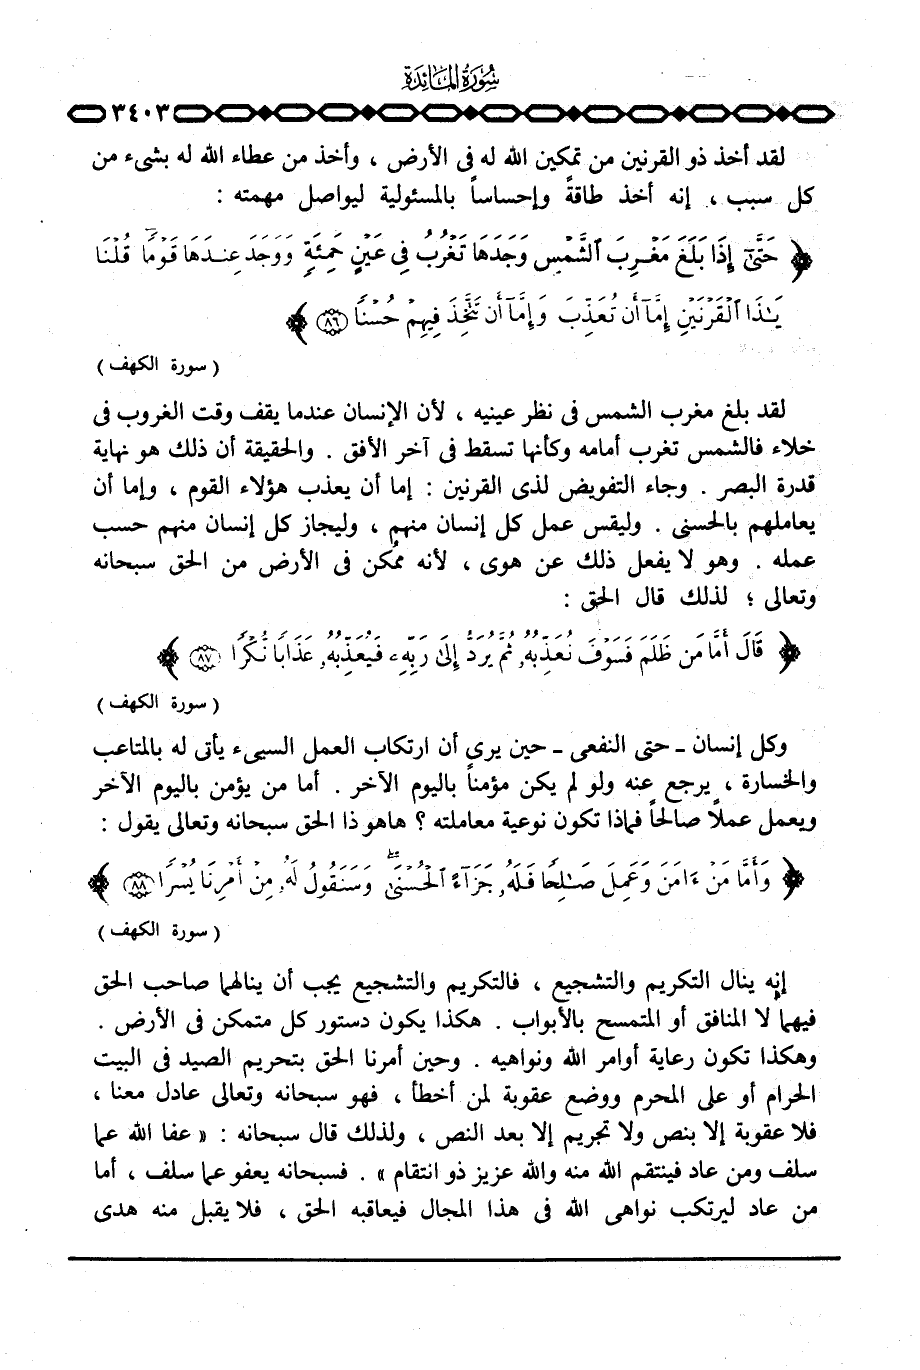 سُورَةُ المَائِدَة
٣٤٠٣
لقد أخذ ذو القرنين من تمكين الله له فى الأرض ، وأخذ من عطاء الله له بشىء من
كل سبب ، إنه أخذ طاقةً وإحساساً بالمسئولية ليواصل مهمته :
﴿ حَتَّىٰٓ إِذَا بَلَغَ مَغْرِبَ ٱلشَّمْسِ وَجَدَهَا تَغْرُبُ فِى عَيْنٍ حَمِئَةٍ وَوَجَدَ عِندَهَا قَوْمًا ۗ قُلْنَا
يَٰذَا ٱلْقَرْنَيْنِ إِمَّآ أَن تُعَذِّبَ وَإِمَّآ أَن تَتَّخِذَ فِيهِمْ حُسْنًا ٨٦ ﴾
( سورة الكهف )
لقد بلغ مغرب الشمس فى نظر عينيه ، لأن الإنسان عندما يقف وقت الغروب فى
خلاء فالشمس تغرب أمامه وكأنها تسقط فى آخر الأفق . والحقيقة أن ذلك هو نهاية
قدرة البصر . وجاء التفويض لذى القرنين : إما أن يعذب هؤلاء القوم ، وإما أن
يعاملهم بالحسنى . وليقس عمل كل إنسان منهم ، وليجاز كل إنسان منهم حسب
عمله . وهو لا يفعل ذلك عن هوى ، لأنه ممُكن فى الأرض من الحق سبحانه
وتعالى ؛ لذلك قال الحق :
﴿ قَالَ أَمَّا مَن ظَلَمَ فَسَوْفَ نُعَذِّبُهُۥ ثُمَّ يُرَدُّ إِلَىٰ رَبِّهِۦ فَيُعَذِّبُهُۥ عَذَابًا نُّكْرًا ٨٧ ﴾
( سورة الكهف )
وكل إنسان ـ حتى النفعى ـ حين يرى أن ارتكاب العمل السيىء يأتى له بالمتاعب
والخسارة ، يرجع عنه ولو لم يكن مؤمناً باليوم الآخر . أما من يؤمن باليوم الآخر
ويعمل عملاً صالحاً فماذا تكون نوعية معاملته ؟ هاهو ذا الحق سبحانه وتعالى يقول :
﴿ وَأَمَّا مَنْ ءَامَنَ وَعَمِلَ صَٰلِحًا فَلَهُۥ جَزَآءً ٱلْحُسْنَىٰ ۖ وَسَنَقُولُ لَهُۥ مِنْ أَمْرِنَا يُسْرًا ٨٨ ﴾
( سورة الكهف )
إنه ينال التكريم والتشجيع ، فالتكريم والتشجيع يجب أن ينالهما صاحب الحق
فيهما لا المنافق أو المتمسح بالأبواب . هكذا يكون دستور كل متمكن فى الأرض .
وهكذا تكون رعاية أوامر الله ونواهيه . وحين أمرنا الحق بتحريم الصيد فى البيت
الحرام أو على المحرم ووضع عقوبة لمن أخطأ ، فهو سبحانه وتعالى عادل معنا ،
فلا عقوبة إلا بنص ولا تجريم إلا بعد النص ، ولذلك قال سبحانه : « عفا الله عما
سلف ومن عاد فينتقم الله منه والله عزيز ذو انتقام » . فسبحانه يعفو عما سلف ، أما
من عاد ليرتكب نواهى الله فى هذا المجال فيعاقبه الحق ، فلا يقبل منه هدى